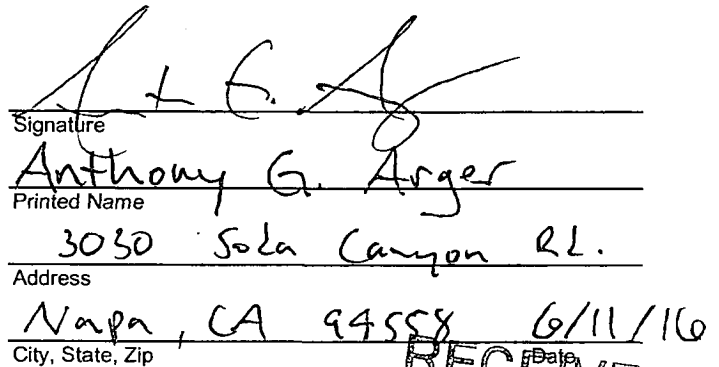 Signature
Anthony G. Arger
Printed Name
3030 Soda Canyon Rd.
Address
Napa, CA 94558 6/11/16
City, State, Zip Date